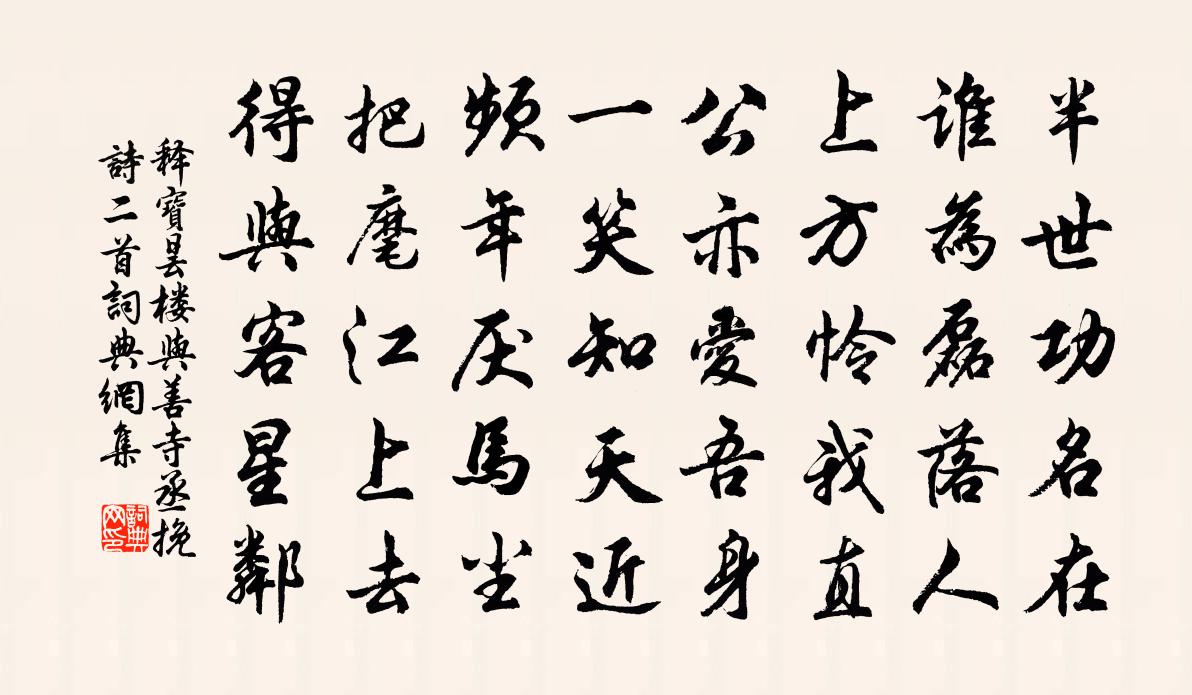 半世功名在
誰為磊落人
上方怜我直
公亦愛吾身
一笑知天近
頻年厌馬尘
把麾江上去
得與客星鄰
释寶曇楼與善寺丞挽
詩二首詞典網集
詞典网印